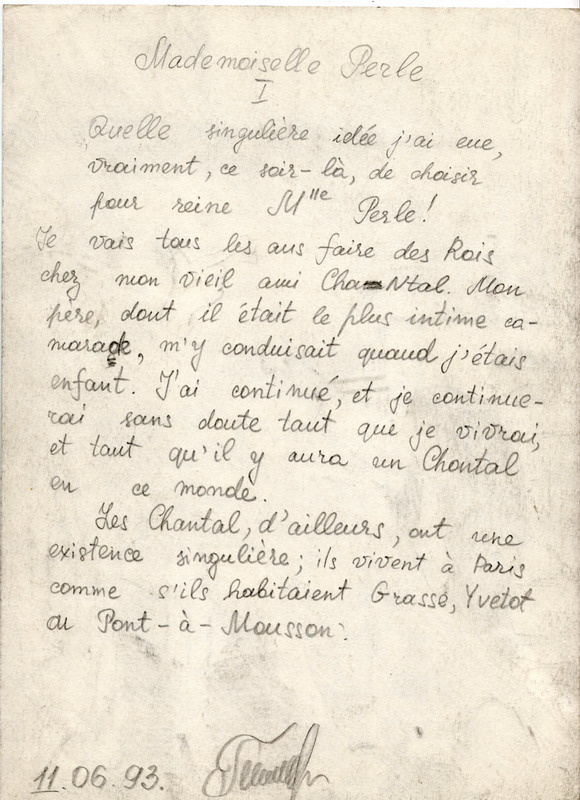 Mademoiselle Perle
I
Quelle singulière idée j'ai eue,
vraiment, ce soir-là, de choisir
pour reine Mlle Perle!
Je vais tous les ans faire des Rois
chez mon vieil ami Cha-Ntal. Mon
père, dont il était le plus intime ca-
marade, m'y conduisait quand j'étais
enfant. J'ai continué, et je continue-
rai sans doute tant que je vivrai,
et tant qu'il y aura un Chontal
en ce monde.
Les Chantal, d'ailleurs, ont une
existence singulière; ils vivent à Paris
comme s'ils habitaient Grasse, Yvetot
ou Pont-à-Mousson.
11.06.93.